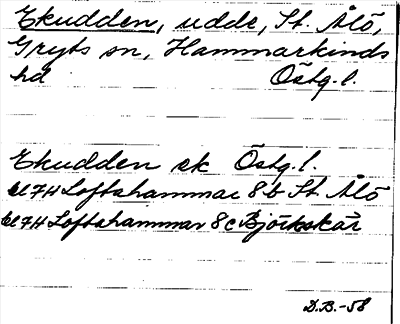 Ekudden, udde, St. Ålö,
Gryts sn, Hammarkinds
hd Östg.l.
Ekudden ek Östg.l.
bl 7H Loftahammar 8b St Ålö
bl 7H Loftahammar 8c Björkskär
D.B.-58